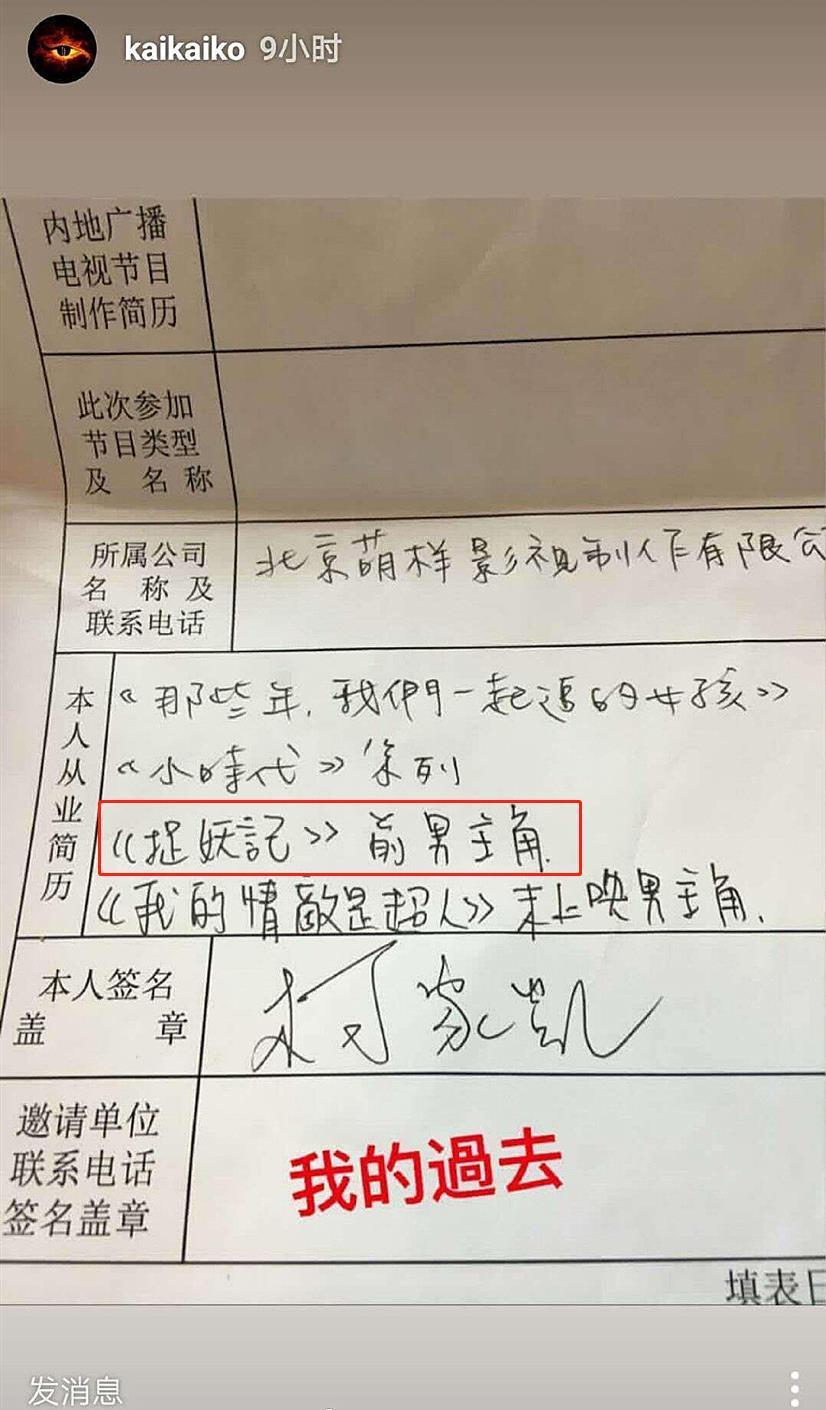 kaikaiko 9小时
内地广播
电视节目
制作简历
此次参加
节目类型
及 名 称
所属公司
名 称 及
联系电话
北京萌样影视制作有限公
本人从业简历
《那些年，我們一起追的女孩》
《小時代》系列
《捉妖記》前男主角.
《我的情敵是超人》未上映男主角.
本人签名
盖 章
柯家凯
邀请单位
联系电话
签名盖章
我的過去
填表日
发消息